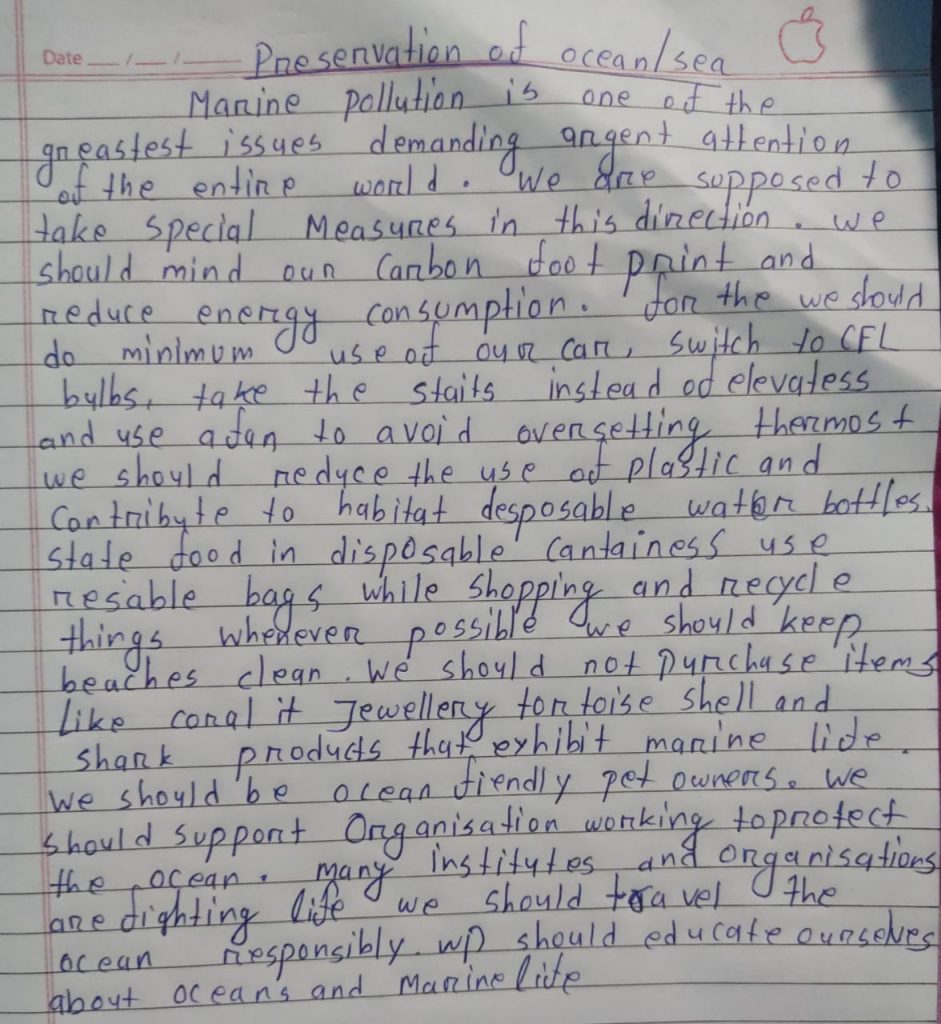 Date __/__/__
Preservation of ocean/sea
Marine pollution is one of the
greastest issues demanding argent attention
of the entire world. We are supposed to
take special Measures in this direction. we
should mind our Carbon foot print and
reduce energy consumption. for the we should
do minimum use of our car, switch to CFL
bulbs, take the staits instead of elevatess
and use a fan to avoid oversetting thermost
we should reduce the use of plastic and
Contribyte to habitat desposable water bottles.
state food in disposable Cantainess use
resable bags while shopping and recycle
things whenever possible we should keep
beaches clean. We should not purchase items
like coral it Jewellery tortoise shell and
shark products that exhibit marine life.
We should be ocean fiendly pet owners. we
should support Organisation working to protect
the ocean. Many institutes and organisations
are fighting life we should travel the
ocean responsibly. we should educate ourselves
about oceans and Marine life